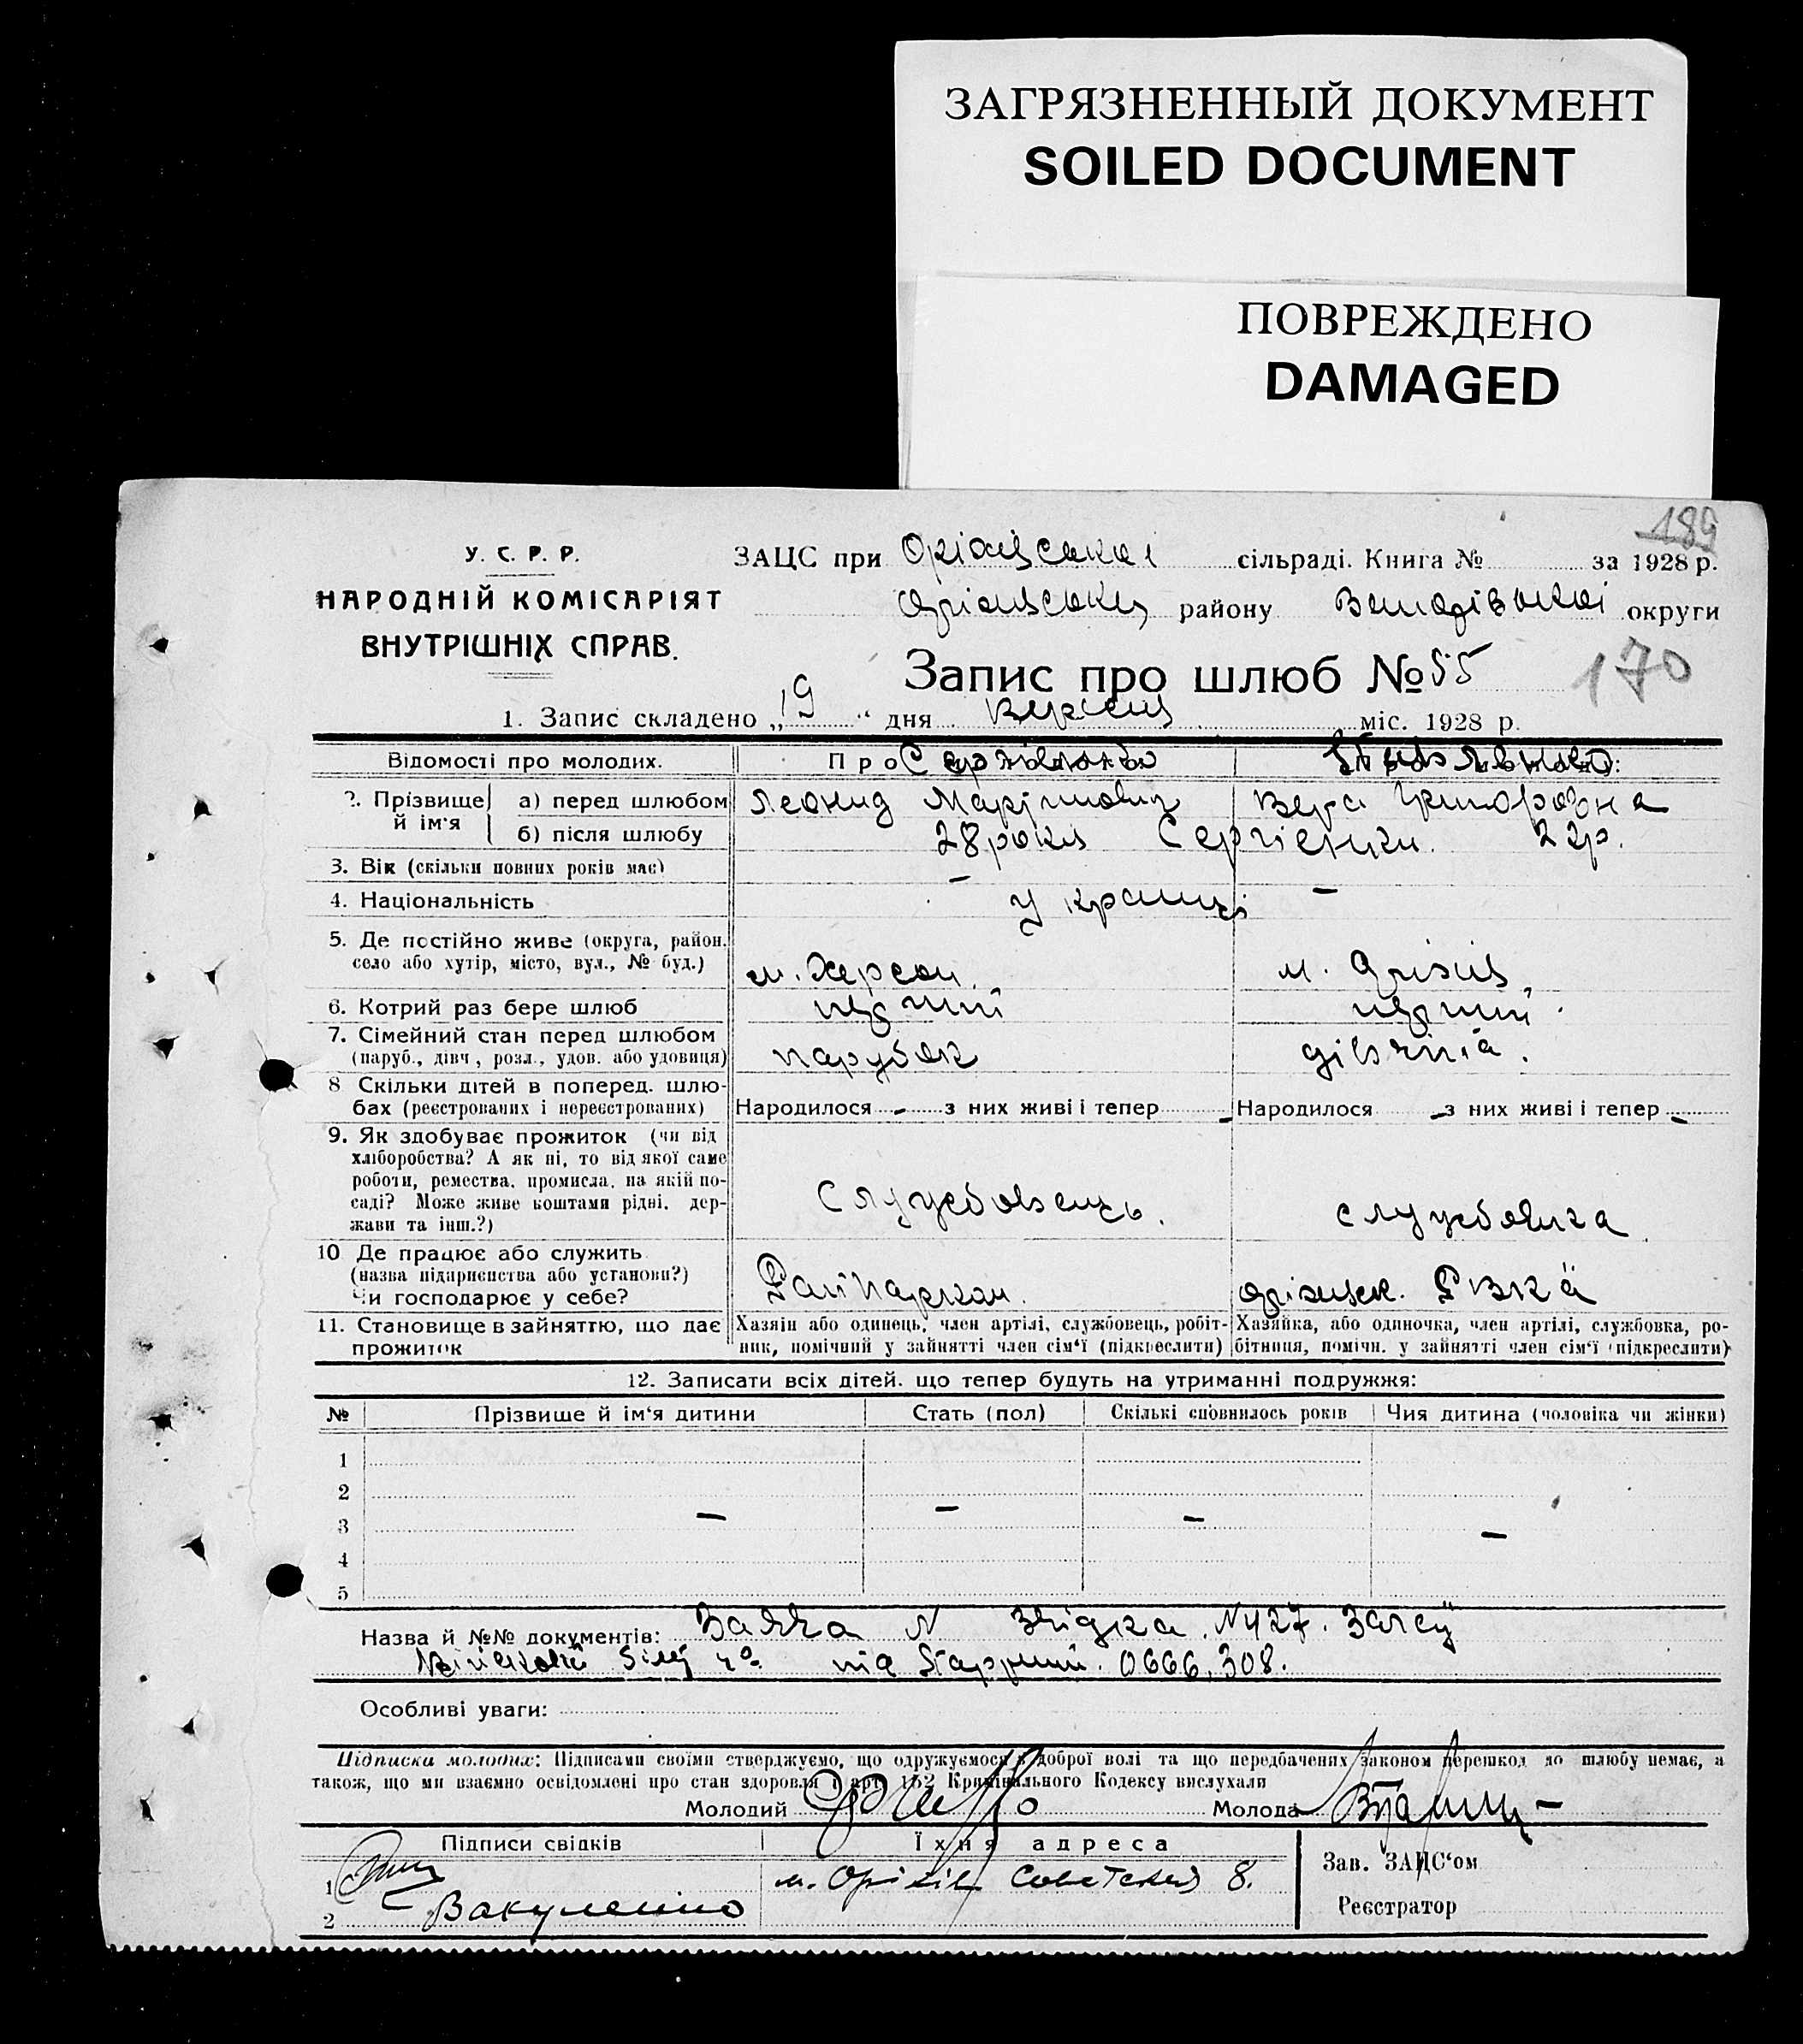 ЗАГРЯЗНЕННЫЙ ДОКУМЕНТ
SOILED DOCUMENT
ПОВРЕЖДЕНО
DAMAGED
189
У. С. Р. Р.
НАРОДНІЙ КОМІСАРІЯТ
ВНУТРІШНІХ СПРАВ.
ЗАЦС при Оріхівської сільраді. Книга № за 1928 р.
району округи
Запис про шлюб № 55
170
1. Запис складено „19“ дня Вересня міс. 1928 р.
Відомості про молодих.
2. Прізвище й ім'я
а) перед шлюбом
б) після шлюбу
Леонид Вера
28 років Сергієнки. 22 р.
3. Вік (скільки повних років має)
4. Національність
українці
5. Де постійно живе (округа, район. село або хутір, місто, вул., № буд.)
м. Херсон м. Оріхів
6. Котрий раз бере шлюб
перший перший
7. Сімейний стан перед шлюбом
(паруб., дівч., розл., удов. або удовиця)
парубок дівчина.
8 Скільки дітей в поперед. шлю-
бах (реєстрованих і нереєстрованих)
Народилося - з них живі і тепер - Народилося - з них живі і тепер -
9. Як здобуває прожиток (чи від
хліборобства? А як ні, то від якої саме
роботи, ремества. промисла. на якій по-
саді? Може живе коштами рідні. дер-
жави та інш.?)
Службовець. службовка
10 Де працює або служить
(назва підприємства або установи?)
Чи господарює у себе?
Райпарком.
11. Становище в зайняттю, що дає
прожиток
Хазяїн або одинець, член артілі, службовець, робіт-
ник, помічний у зайнятті член сім'ї (підкреслити)
Хазяйка, або одиночка, член артілі, службовка, ро-
бітниця, помічн. у зайнятті член сім'ї (підкреслити)
12. Записати всіх дітей. що тепер будуть на утриманні подружжя:
№ Прізвище й ім'я дитини Стать (пол) Скількі сповнилось років Чия дитина (чоловіка чи жінки)
1
2
3
4
5
Назва й №№ документів: Заява N427.
0666,308.
Особливі уваги:
Підписка молодих: Підписами своїми стверджуємо, що одружуємося з доброї волі та що передбачених законом перешкод до шлюбу немає, а
також, що ми взаємно освідомлені про стан здоровля і арт. 152 Кримінального Кодексу вислухали
Молодий Молода
Підписи свідків Їхня адреса
1 м. Оріхів Советская 8.
2 Вакуленко
Зав. ЗАЦС'ом
Реєстратор